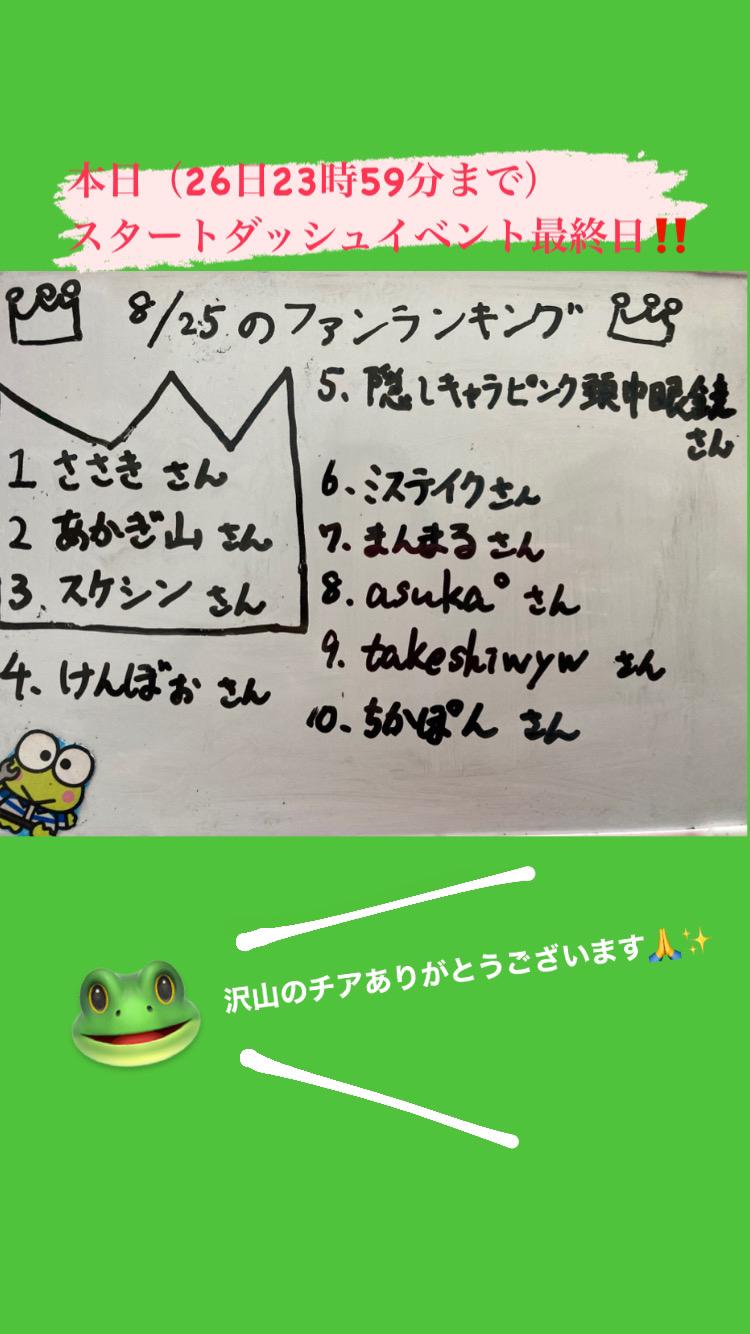 本日（26日23時59分まで）
スタートダッシュイベント最終日‼️
8/25のファンランキング
1 ささき さん
2 あかぎ山 さん
3. スケシン さん
4. けんぼお さん
5. 隠しキャラピンク頭巾眼鏡
さん
6. ミステイクさん
7. まんまる さん
8. asuka° さん
9. takeshiwyw さん
10. ちかぽん さん
沢山のチアありがとうございます🙏✨